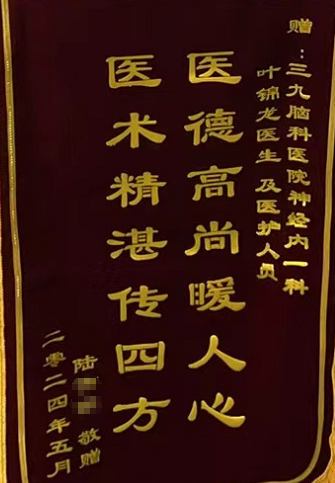 赠：三九脑科医院神经内一科
叶锦龙医生及医护人员
医德高尚暖人心
医术精湛传四方
陆 敬赠
二零二四年五月